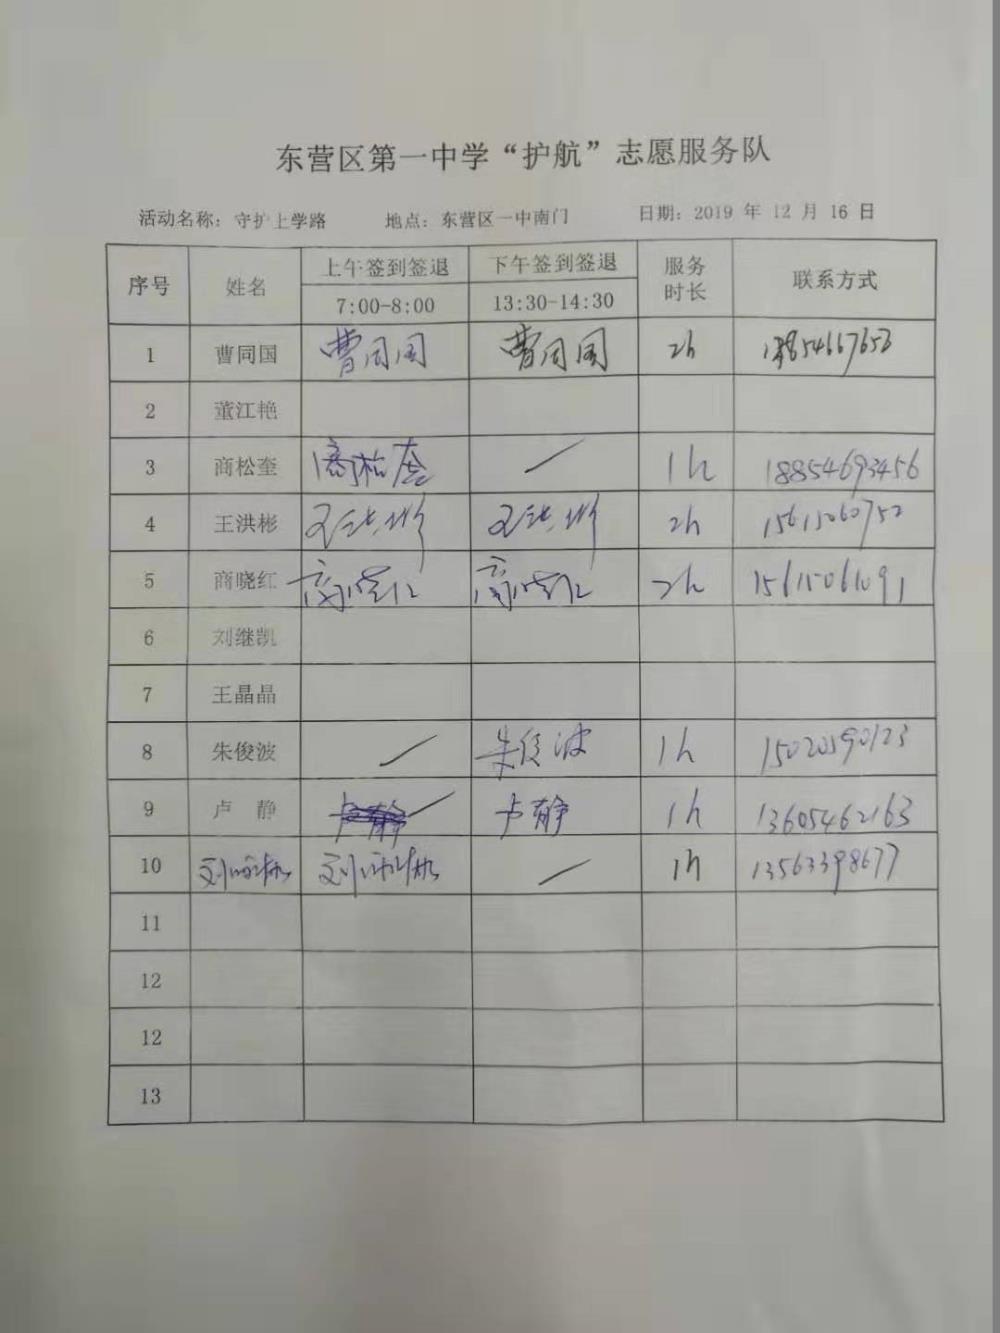 东营区第一中学“护航”志愿服务队
活动名称：守护上学路 地点：东营区一中南门 日期：2019 年 12 月 16 日
序号 姓名 上午签到签退 下午签到签退 服务时长 联系方式
7:00-8:00 13:30-14:30
1 曹同国 曹同国 曹同国 2h
2 董江艳
3 商松奎 商松奎 一 1h 18854693456
4 王洪彬 王洪彬 王洪彬 2h 15615060752
5 商晓红 商晓红 商晓红 2h 15615061091
6 刘继凯
7 王晶晶
8 朱俊波 一 朱俊波 1h 15020590123
9 卢 静 卢静 一 卢静 1h 13605462163
10 一 1h 13563398677
11
12
12
13